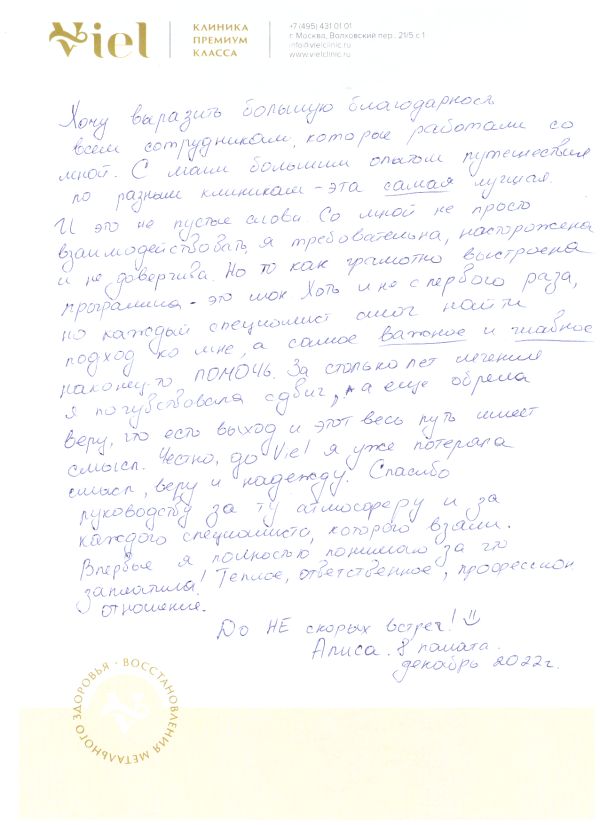 Viel
КЛИНИКА
ПРЕМИУМ
КЛАССА
+7 (495) 431 01 01
г. Москва, Волховский пер., 21/5 с.1
info@vielclinic.ru
www.vielclinic.ru
Хочу выразить большую благодарнося
всем сотрудникам, которые работали со
мной. С моим большим опытом путешествия
по разным клиникам - эта самая лучшая.
И это не пустые слова. Со мной не просто
взаимодействовать, я требовательна, насторожена
и не доверчива. Но то как грамотно выстроена
программа - это шок. Хоть и не с первого раза,
но каждый специалист смог найти
подход ко мне, а самое важное и главное
наконец-то ПОМОЧЬ. За столько лет лечения
я почувствовала сдвиг, а еще обрела
веру, что есть выход и этот весь путь имеет
смысл. Честно, до Viel я уже потеряла
смысл, веру и надежду. Спасибо
руководству за ту атмосферу и за
каждого специалиста, которого взяли.
Впервые я полностью понимаю за что
заплатила! Теплое, ответственное, профессион
отношение.
До НЕ скорых встреч!
Алиса. 8 палата.
декабрь 2022г.
ВОССТАНОВЛЕНИЯ МЕТАЛЬНОГО ЗДОРОВЬЯ